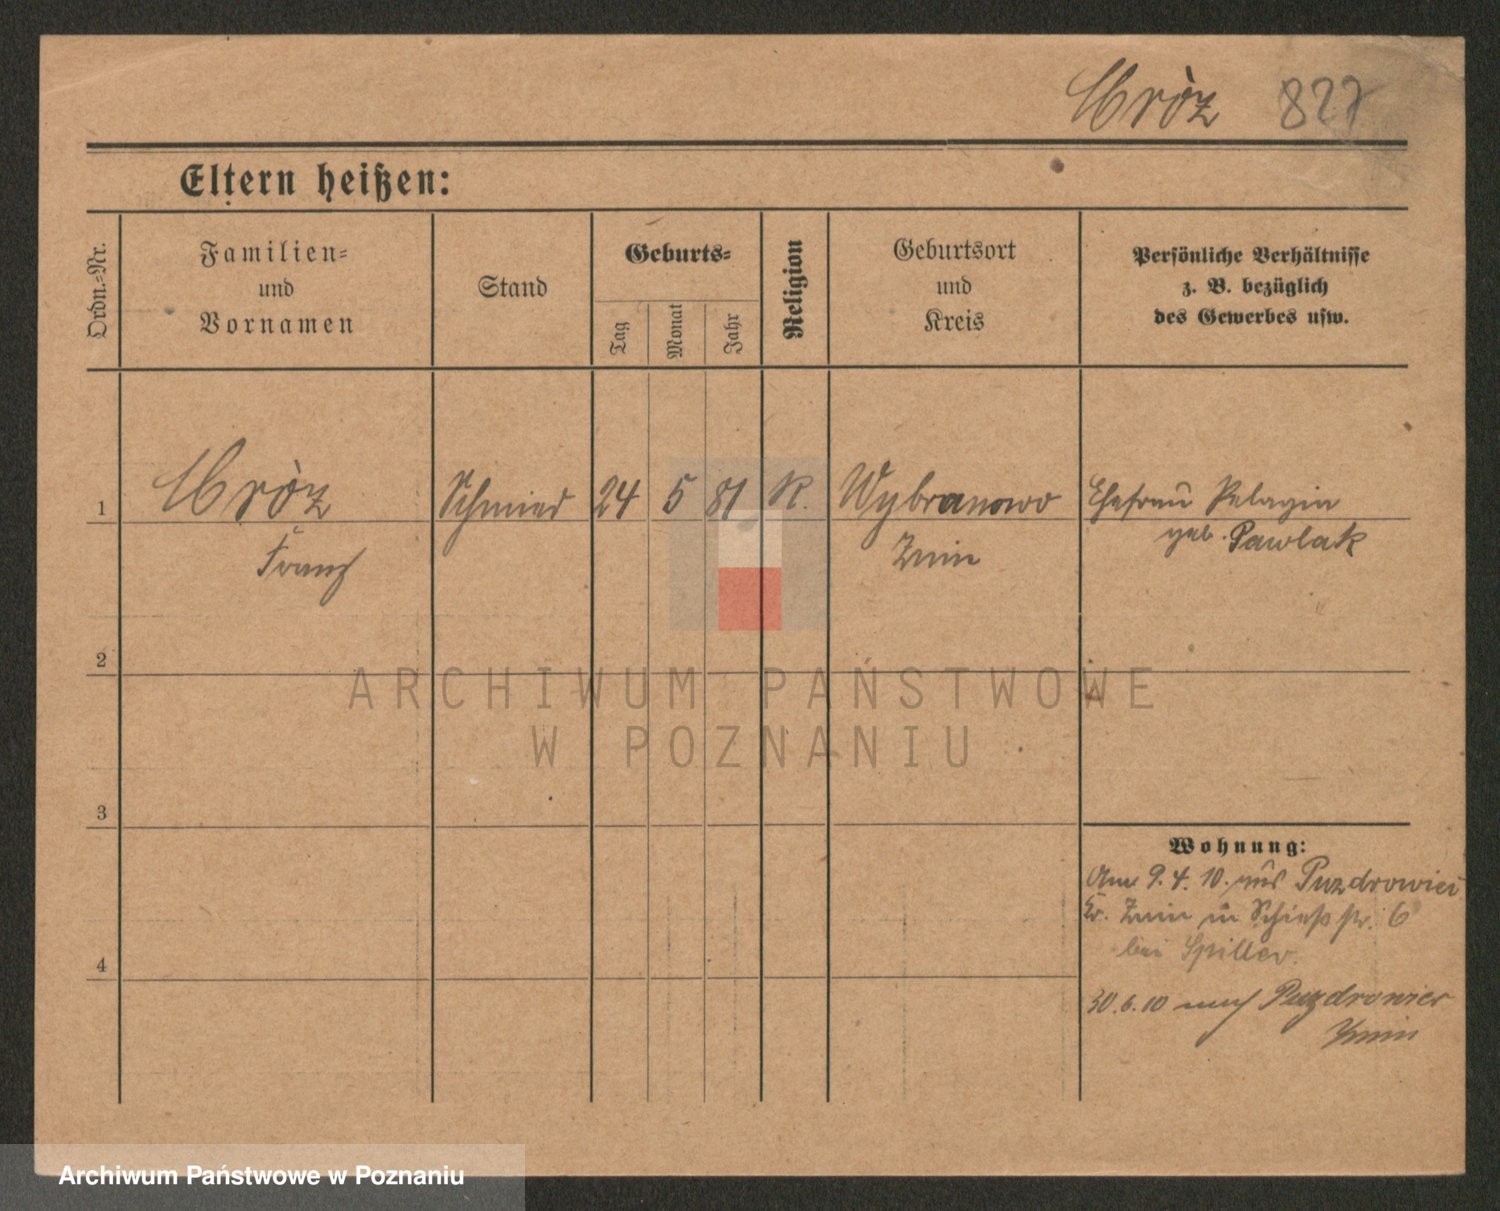 Mròz 827
Eltern heißen:
Ordn.-Nr.
Familien-
und
Vornamen
Stand
Geburts-
Tag
Monat
Jahr
Religion
Geburtsort
und
Kreis
Persönliche Verhältnisse
z. B. bezüglich
des Gewerbes usw.
1 Mròz Schmied 24 5 81 K. Wybranowo Ehefrau Pelagia
Franz Znin geb. Pawlak
2
3
4
Wohnung:
Am 9.4.10. aus Puzdrowiec
Kr. Znin in Schießstr. 6
bei Spiller.
30.6.10 nach Puzdrowiec
Znin
ARCHIWUM PAŃSTWOWE
W POZNANIU
Archiwum Państwowe w Poznaniu